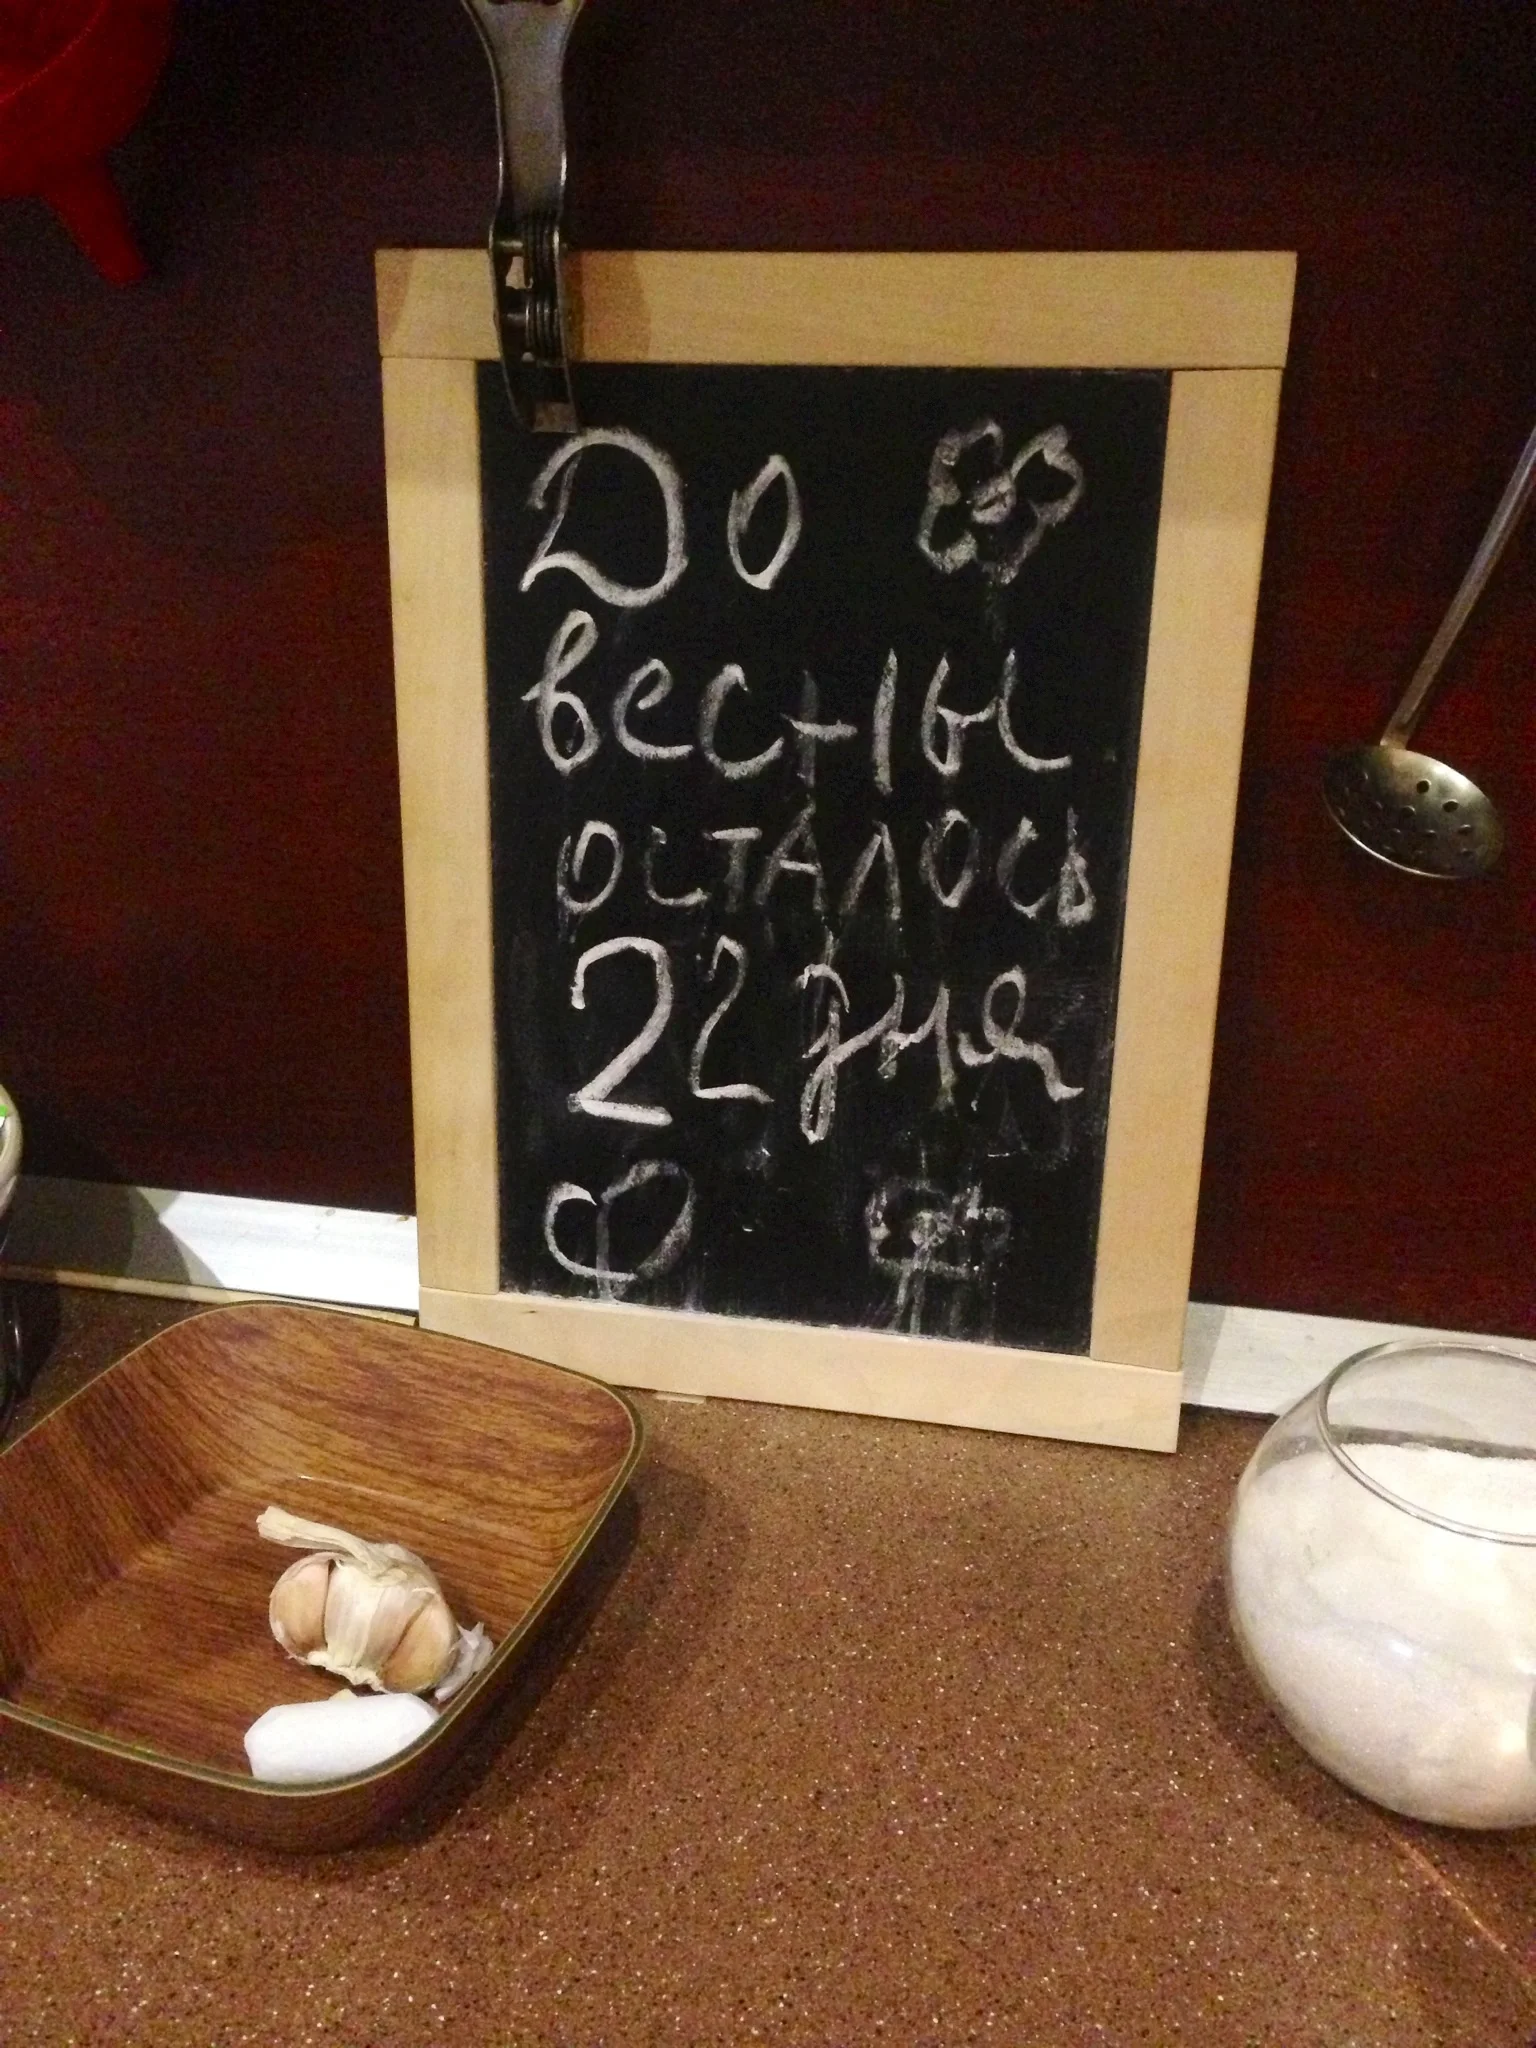 До
весны
осталось
22 дня